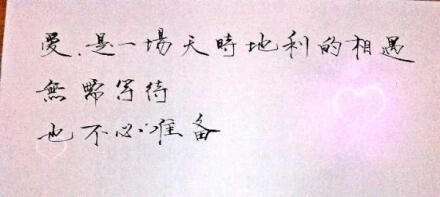 愛.是一場天時地利的相遇
無需等待
也不必准备